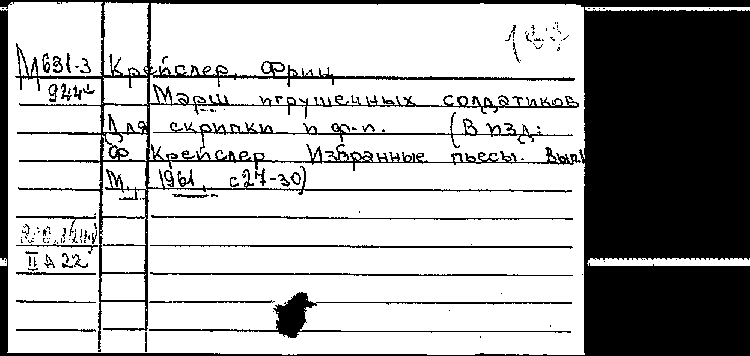 М 631-3 Крейслер, Фриц
Марш игрушечных солдатиков
Для скрипки и ф-п. (В изд.:
Ф. Крейслер. Избранные пьесы. Вып.1
М., 1961, с 27-30)
II А 22